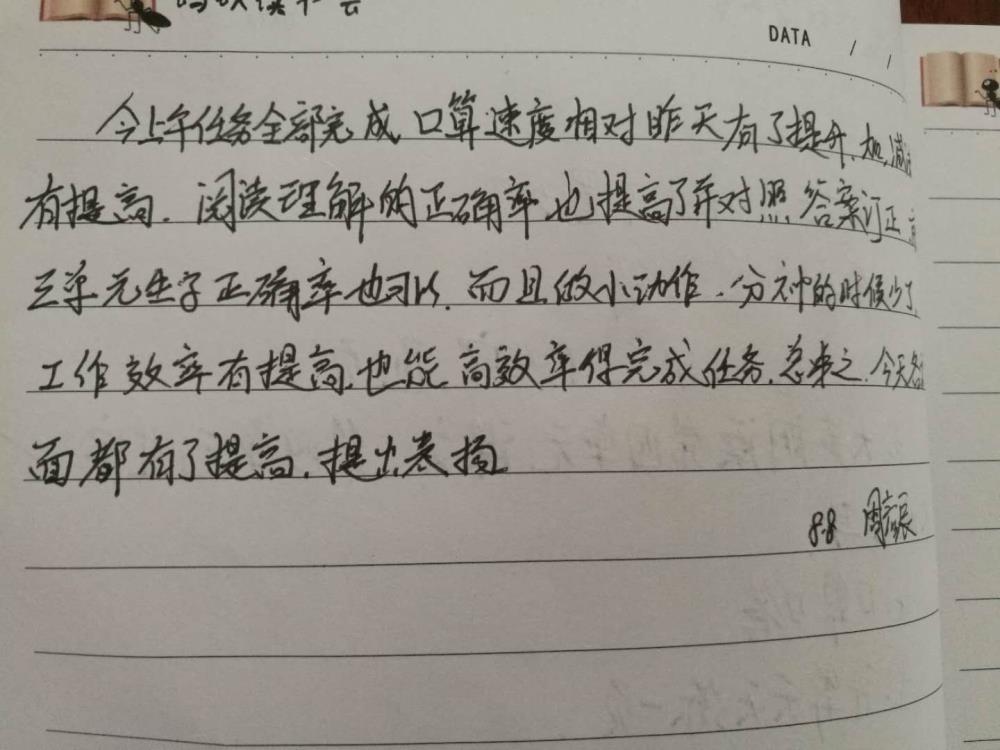 DATA / /
今上午任务全部完成,口算速度相对昨天有了提升,加,减
有提高.阅读理解的正确率也提高了并对照答案订正,
三单元生字正确率也可以.而且做小动作.分神的时候少了
工作效率有提高,也能高效率得完成任务.总来之.今天各
面都有了提高.提出表扬.
8.8 周